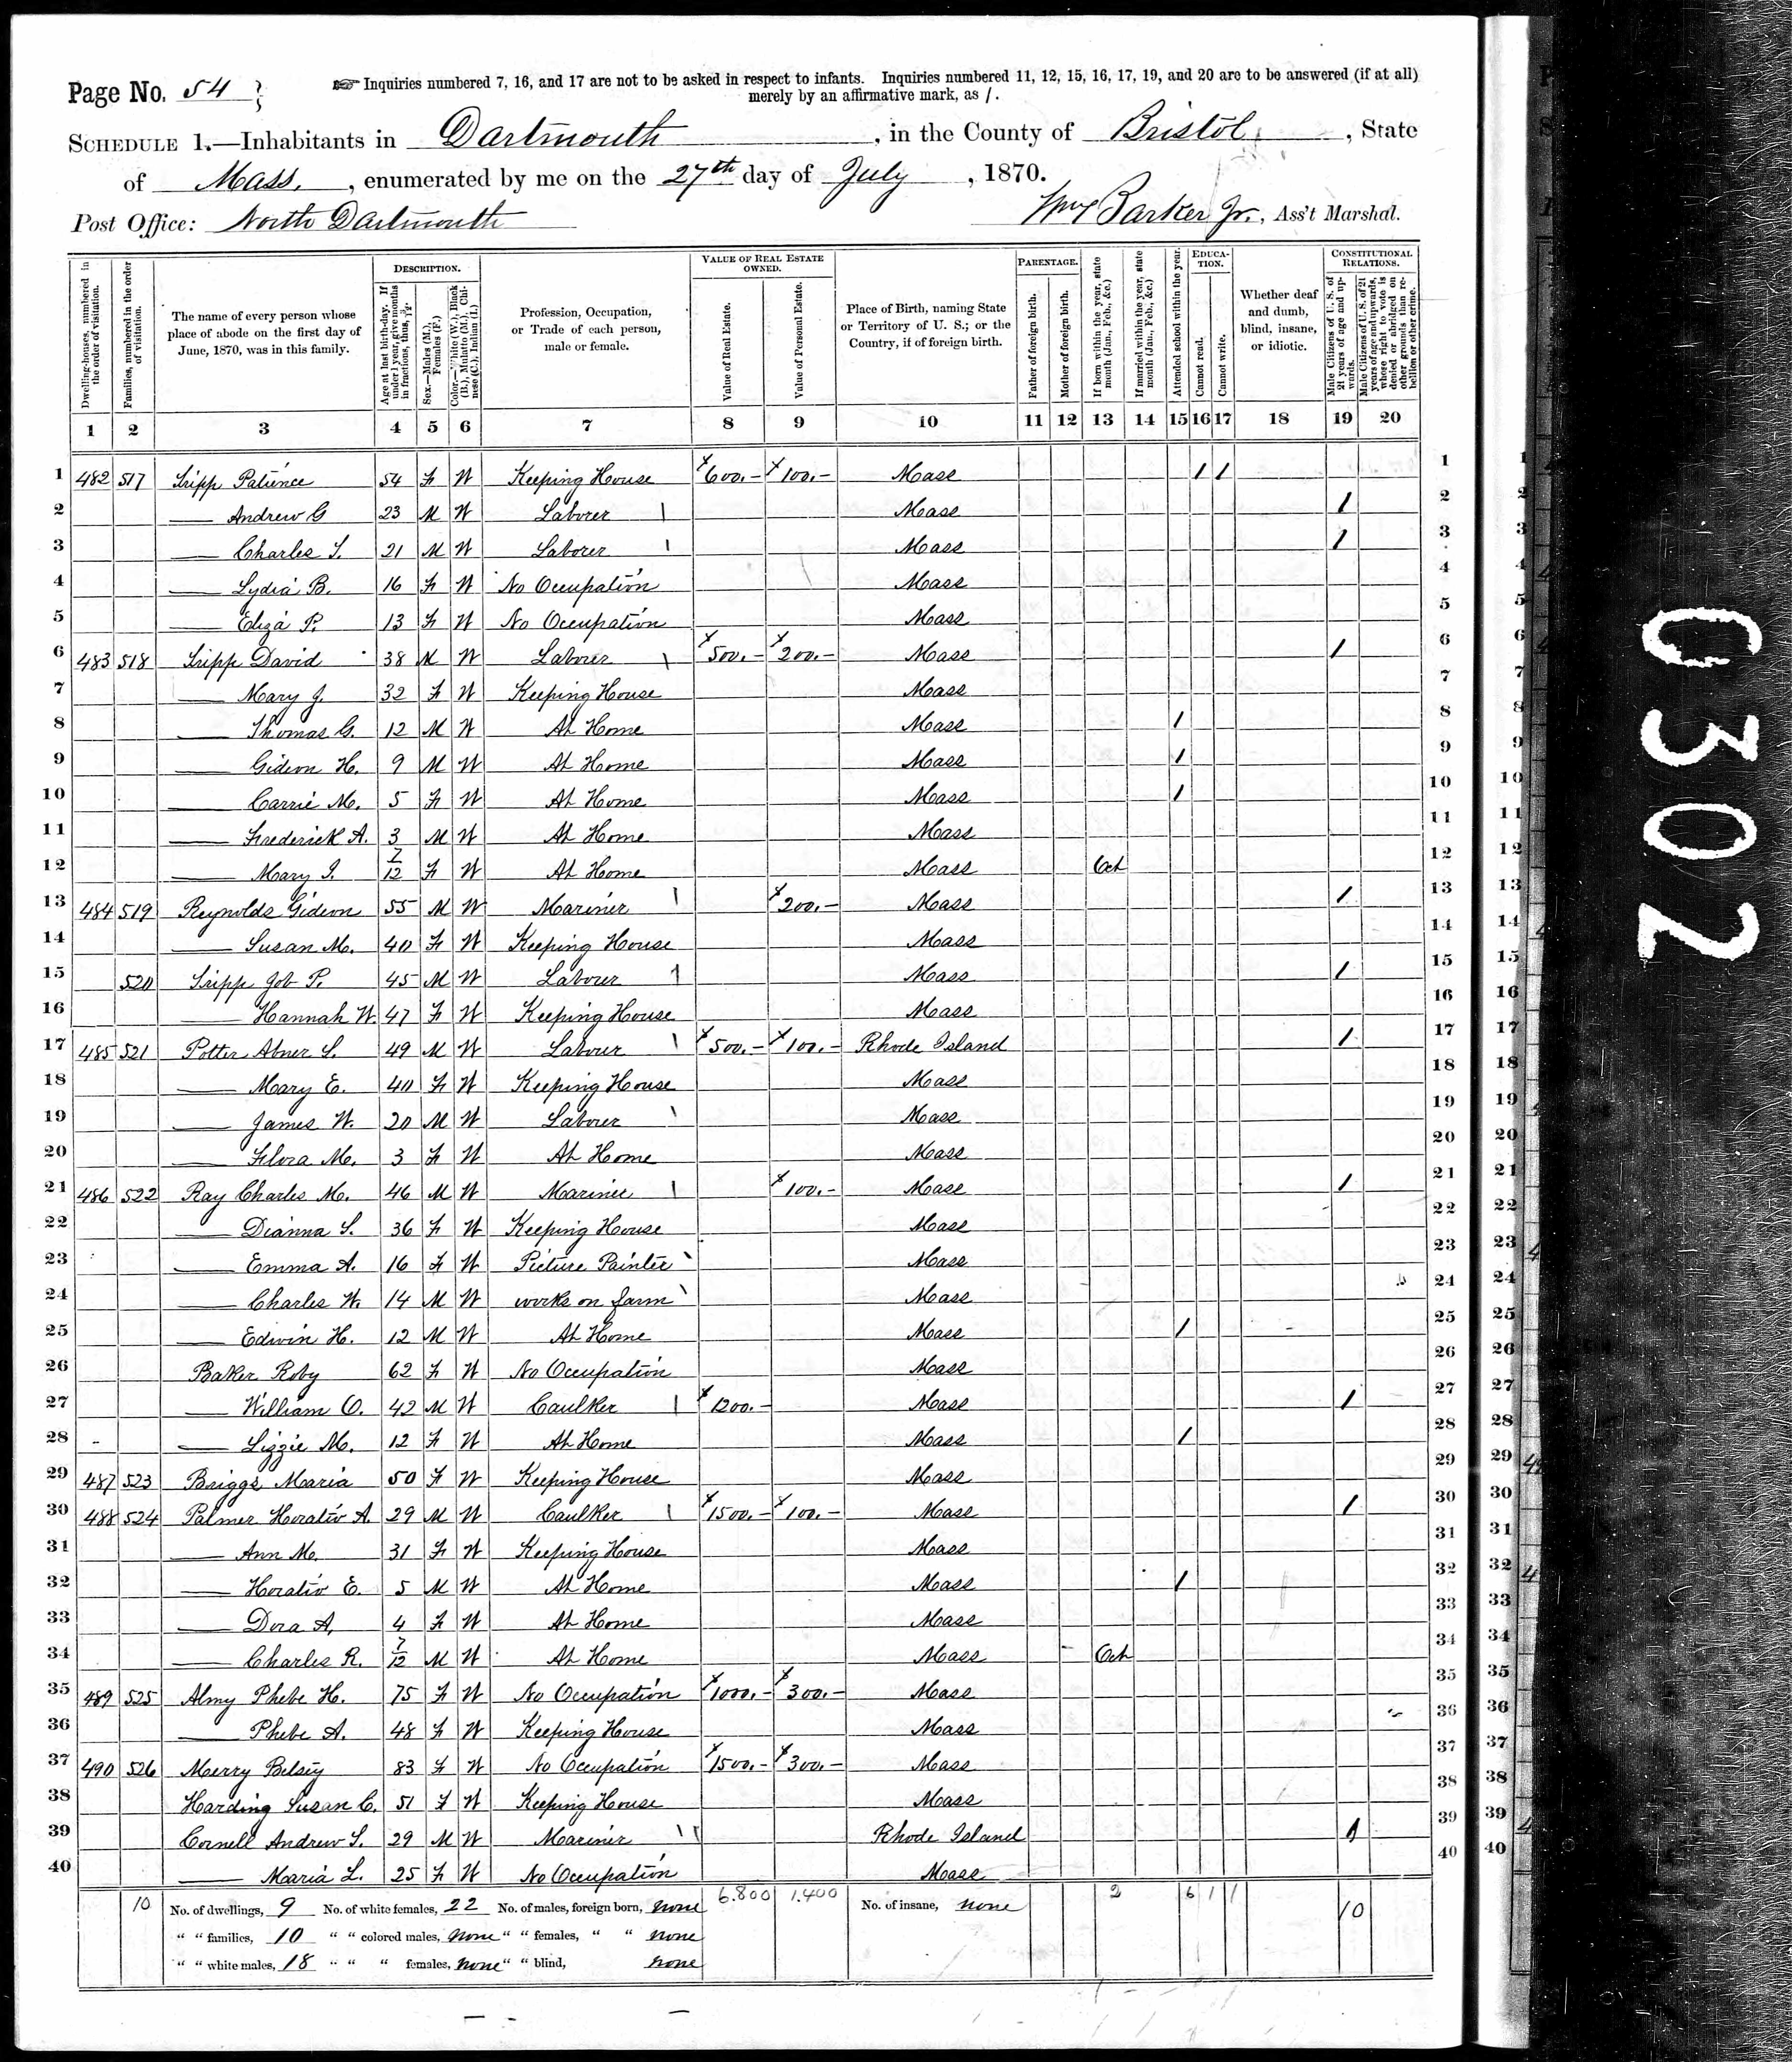 Page No. 54
☞ Inquiries numbered 7, 16, and 17 are not to be asked in respect to infants. Inquiries numbered 11, 12, 15, 16, 17, 19, and 20 are to be answered (if at all)
merely by an affirmative mark, as /.
SCHEDULE 1.—Inhabitants in Dartmouth, in the County of Bristol, State
of Mass, enumerated by me on the 27th day of July, 1870.
Post Office: North Dartmouth Wm Barker Jr., Ass't Marshal.
Dwelling-houses, numbered in the order of visitation.
Families, numbered in the order of visitation.
The name of every person whose place of abode on the first day of June, 1870, was in this family.
DESCRIPTION.
Age at last birth-day. If under 1 year, give months in fractions, thus, 3/12.
Sex.—Males (M.), Females (F.)
Color.—White (W.), Black (B.), Mulatto (M.), Chinese (C.), Indian (I.)
Profession, Occupation, or Trade of each person, male or female.
VALUE OF REAL ESTATE OWNED.
Value of Real Estate.
Value of Personal Estate.
Place of Birth, naming State or Territory of U. S.; or the Country, if of foreign birth.
PARENTAGE.
Father of foreign birth.
Mother of foreign birth.
If born within the year, state month (Jan., Feb., &c.)
If married within the year, state month (Jan., Feb., &c.)
Attended school within the year.
EDUCATION.
Cannot read.
Cannot write.
Whether deaf and dumb, blind, insane, or idiotic.
CONSTITUTIONAL RELATIONS.
Male Citizens of U. S. of 21 years of age and upwards.
Male Citizens of U. S. of 21 years of age and upwards, whose right to vote is denied or abridged on other grounds than rebellion or other crime.
1 2 3 4 5 6 7 8 9 10 11 12 13 14 15 16 17 18 19 20
1 482 517 Tripp Patience 54 F W Keeping House $600.- $100.- Mass / / 1
2 — Andrew G 23 M W Laborer Mass / 2
3 — Charles T. 21 M W Laborer Mass / 3
4 — Lydia B. 16 F W No Occupation Mass 4
5 — Eliza P. 13 F W No Occupation Mass 5
6 483 518 Tripp David 38 M W Laborer $500.- $200.- Mass / 6
7 — Mary J. 32 F W Keeping House Mass 7
8 — Thomas G. 12 M W At Home Mass / 8
9 — Gideon H. 9 M W At Home Mass / 9
10 — Carrie M. 5 F W At Home Mass / 10
11 — Frederick A. 3 M W At Home Mass 11
12 — Mary I. 7/12 F W At Home Mass Oct 12
13 484 519 Reynolds Gideon 55 M W Mariner $200.- Mass / 13
14 — Susan M. 40 F W Keeping House Mass 14
15 520 Tripp Job P. 45 M W Laborer Mass / 15
16 — Hannah W. 47 F W Keeping House Mass 16
17 485 521 Potter Abner S. 49 M W Laborer $500.- $100.- Rhode Island / 17
18 — Mary E. 40 F W Keeping House Mass 18
19 — James W. 20 M W Laborer Mass 19
20 — Flora M. 3 F W At Home Mass 20
21 486 522 Ray Charles M. 46 M W Mariner $100.- Mass / 21
22 — Dianna S. 36 F W Keeping House Mass 22
23 — Emma A. 16 F W Picture Painter Mass 23
24 — Charles W. 14 M W works on farm Mass 24
25 — Edwin H. 12 M W At Home Mass / 25
26 Baker Roby 62 F W No Occupation Mass 26
27 — William O. 42 M W Caulker $1200.- Mass / 27
28 — Lizzie M. 12 F W At Home Mass / 28
29 487 523 Briggs Maria 50 F W Keeping House Mass 29
30 488 524 Palmer Horatio A. 29 M W Caulker $1500.- $100.- Mass / 30
31 — Ann M. 31 F W Keeping House Mass 31
32 — Horatio E. 5 M W At Home Mass / 32
33 — Dora A. 4 F W At Home Mass 33
34 — Charles R. 7/12 M W At Home Mass Oct 34
35 489 525 Almy Phebe H. 75 F W No Occupation $1000.- $300.- Mass 35
36 — Phebe A. 48 F W Keeping House Mass 36
37 490 526 Merry Betsey 83 F W No Occupation $1500.- $300.- Mass 37
38 Harding Susan C. 51 F W Keeping House Mass 38
39 Cornell Andrew S. 29 M W Mariner Rhode Island / 39
40 — Maria L. 25 F W No Occupation Mass 40
10 No. of dwellings, 9 No. of white females, 22 No. of males, foreign born, none 6.800 1.400 No. of insane, none 2 6 1 1 10
" " families, 10 " " colored males, none " " females, " " none
" " white males, 18 " " " females, none " " blind, none
0302